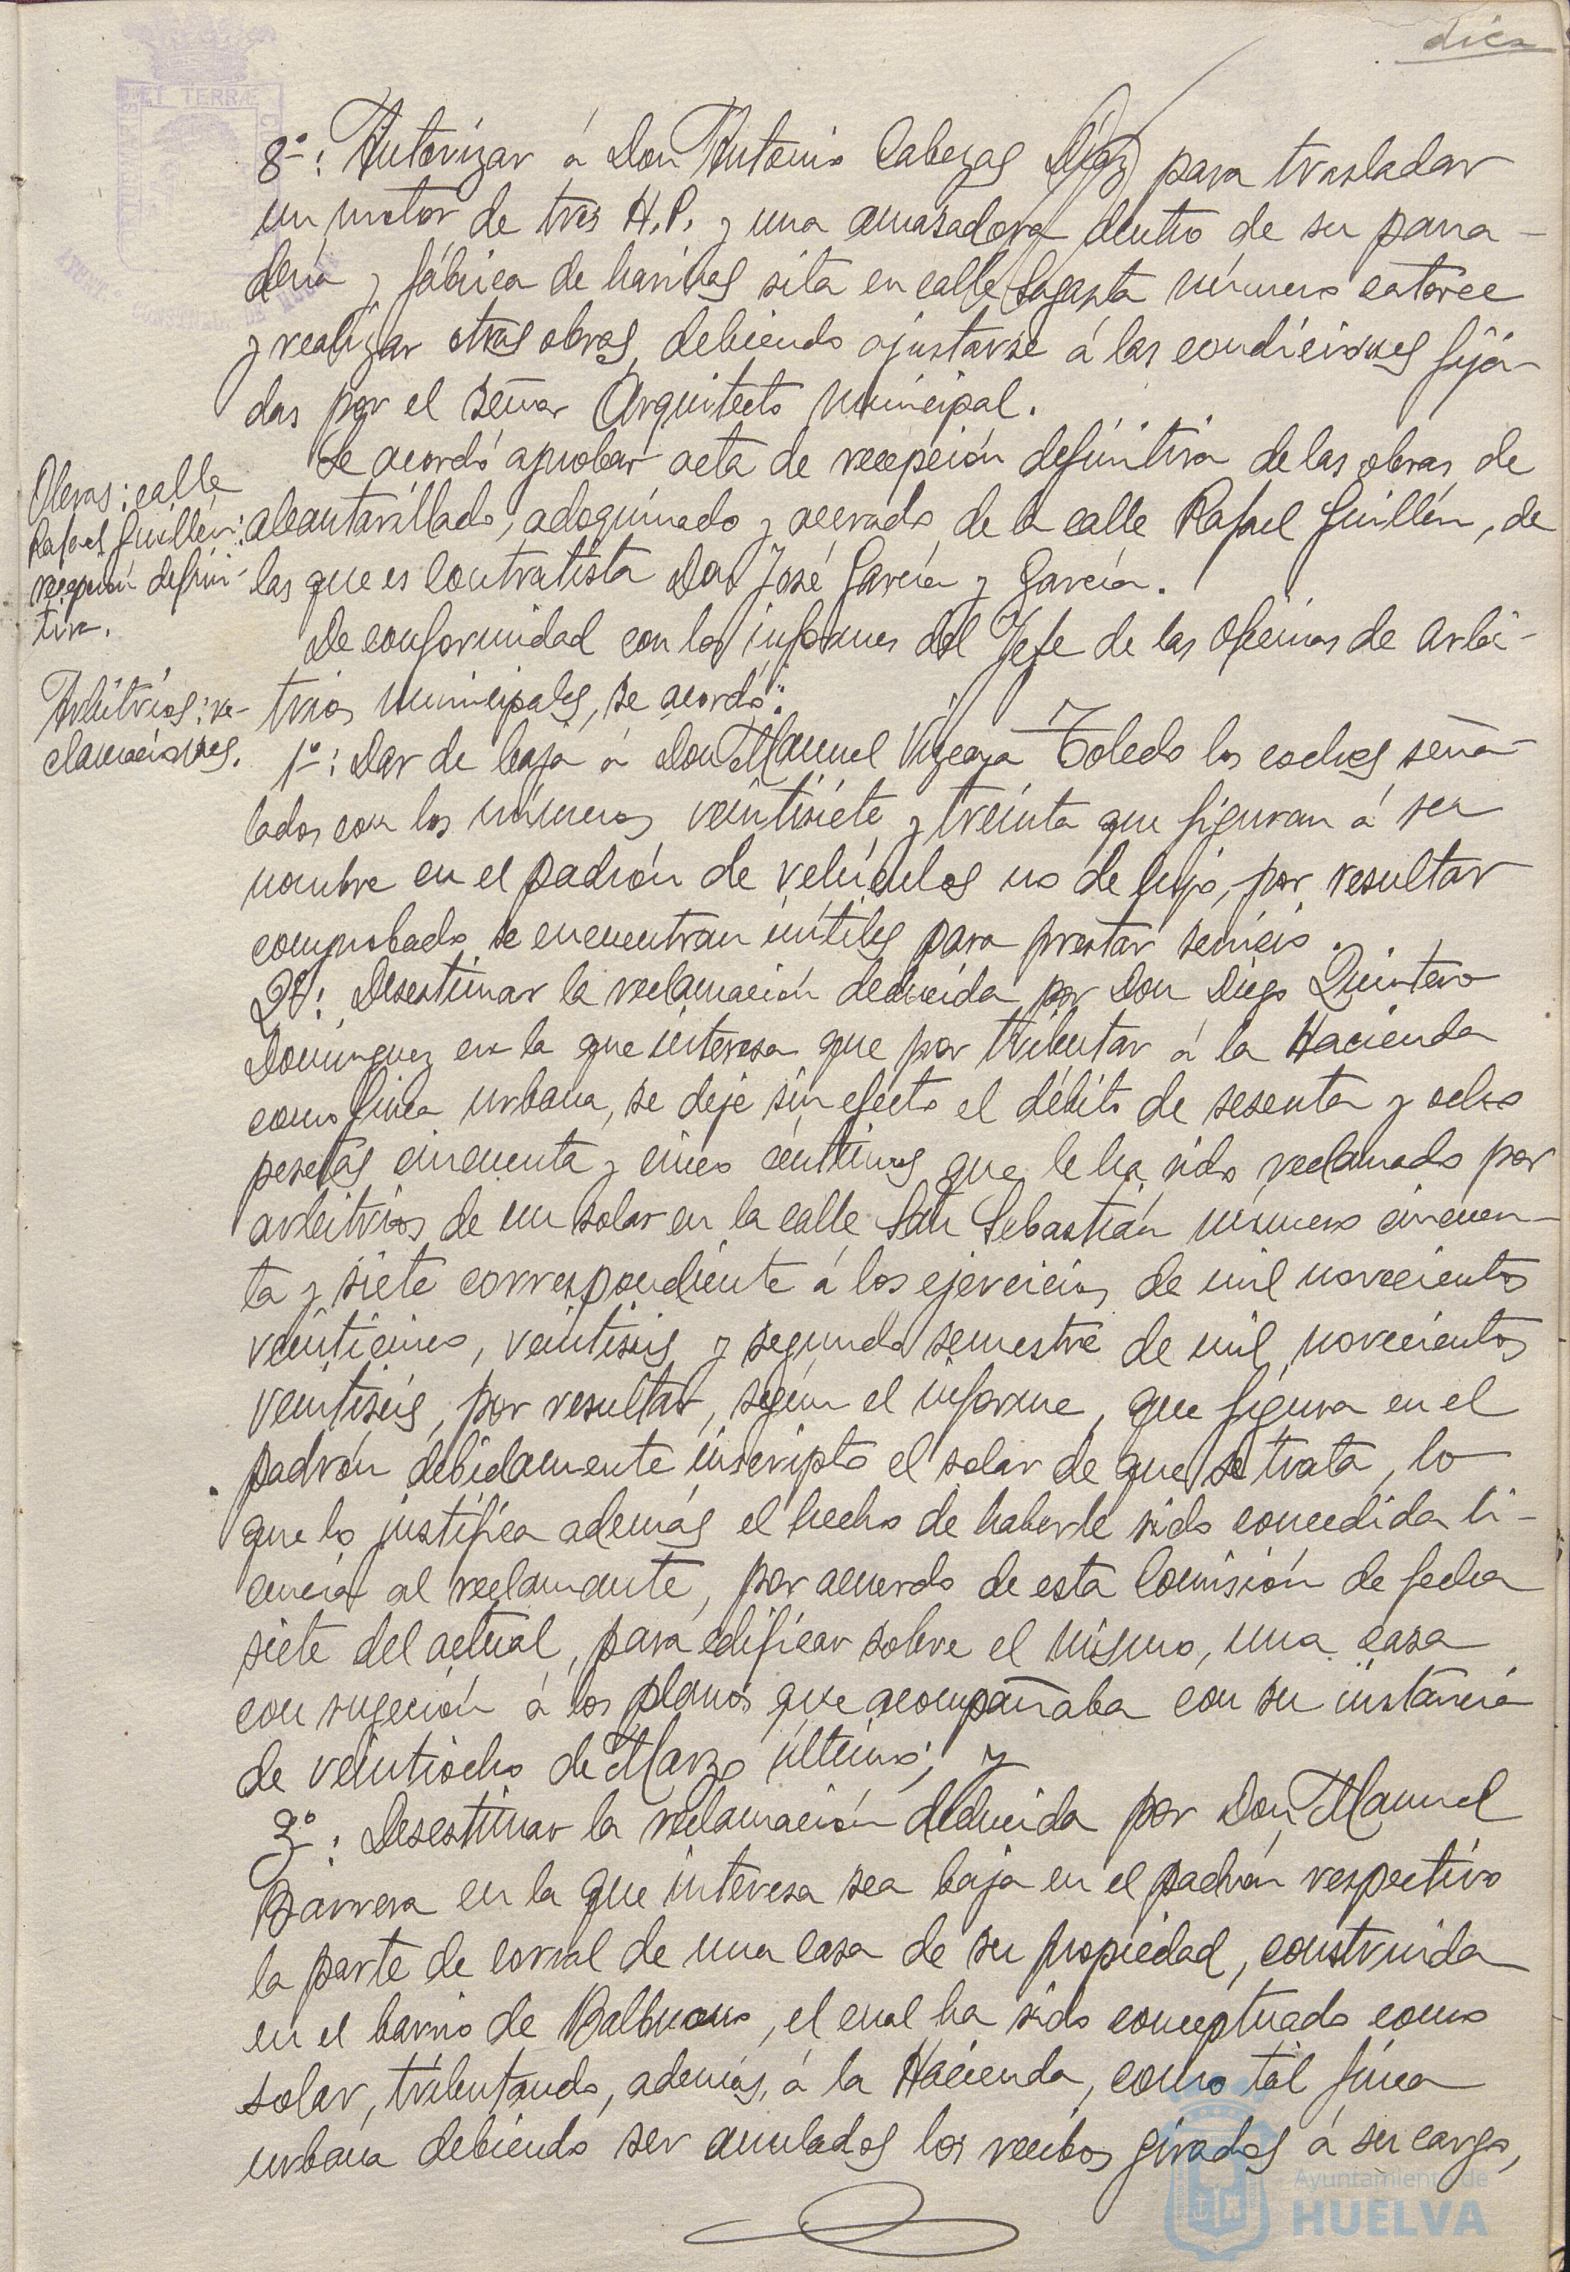 diez
8º: Autorizar á Don Antonio Cabezas Díaz para trasladar
un motor de tres H.P. y una amasadora dentro de su pana-
dería y fábrica de harinas sita en calle Sagasta número catorce
y realizar otras obras, debiendo ajustarse á las condiciones fija-
das por el señor Arquitecto municipal.
Obras: calle
Rafael Guillén:
recepción defini-
tiva.
Se acordó aprobar acta de recepción definitiva de las obras de
alcantarillado, adoquinado y acerado de la calle Rafael Guillén, de
las que es contratista Don José García y García.
Arbitrios: re-
clamaciones.
De conformidad con los informes del Jefe de las oficinas de arbi-
trios municipales, se acordó:
1º: Dar de baja á Don Manuel Vizcaya Toledo los coches seña-
lados con los números veintisiete y treinta que figuran á su
nombre en el padrón de vehículos no de lujo, por resultar
comprobado se encuentran inútiles para prestar servicio.
2º: Desestimar la reclamación deducida por Don Diego Quintero
Domínguez en la que interesa que por tributar á la Hacienda
como finca urbana, se deje sin efecto el débito de sesenta y ocho
pesetas cincuenta y cinco céntimos que le ha sido reclamado por
arbitrios de un solar en la calle San Sebastián número cincuen-
ta y siete correspondiente á los ejercicios de mil novecientos
veinticinco, veintiseis y segundo semestre de mil novecientos
veintiseis, por resultar, según el informe, que figura en el
padrón debidamente inscripto el solar de que se trata, lo
que lo justifica además el hecho de haberle sido concedida li-
cencia al reclamante, por acuerdo de esta Comisión de fecha
siete del actual, para edificar sobre el mismo, una casa
con sugeción á los planos que acompañaba con su instancia
de veintiocho de Marzo último; y
3º: Desestimar la reclamación deducida por Don Manuel
Barrera en la que interesa sea baja en el padrón respectivo
la parte de corral de una casa de su propiedad, construida
en el barrio de Balbueno, el cual ha sido conceptuado como
solar, tributando, además, á la Hacienda, como tal finca
urbana debiendo ser anulados los recibos girados á su cargo,
Ayuntamiento de
HUELVA